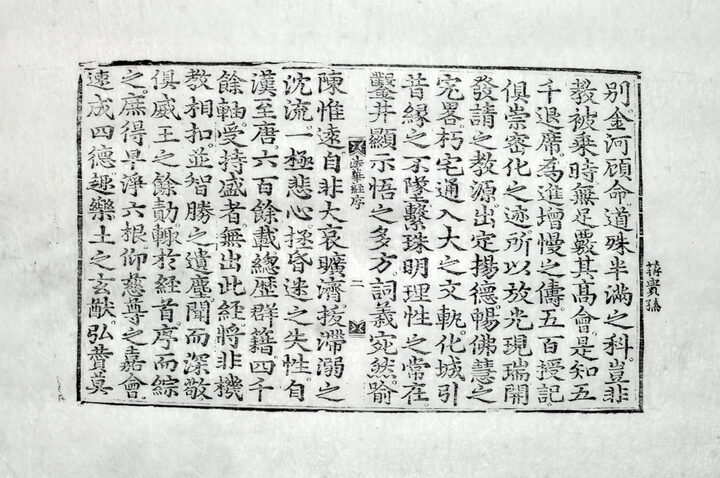 別。金河顧命。道殊半滿之科。豈非
教被乘時。無足覈其高會。是知五
千退席。為進增慢之儔。五百授記。
俱崇密化之迹。所以放光現瑞。開
發請之教源。出定揚德。暢佛慧之
宏畧。朽宅通入大之文軌。化城引
昔緣之不墜。繫珠明理性之常在。
鑿井顯示悟之多方。詞義宛然。喻
法華經序 二
陳惟遠。自非大哀曠濟。拔滯溺之
沈流。一極悲心。拯昏迷之失性。自
漢至唐。六百餘載。總歷群籍。四千
餘軸。受持盛者。無出此經。將非機
教相扣。並智勝之遺塵。聞而深敬。
俱威王之餘勣。輒於經首。序而綜
之。庶得早淨六根。仰慈尊之嘉會。
速成四德。趣樂土之玄猷。弘贊莫